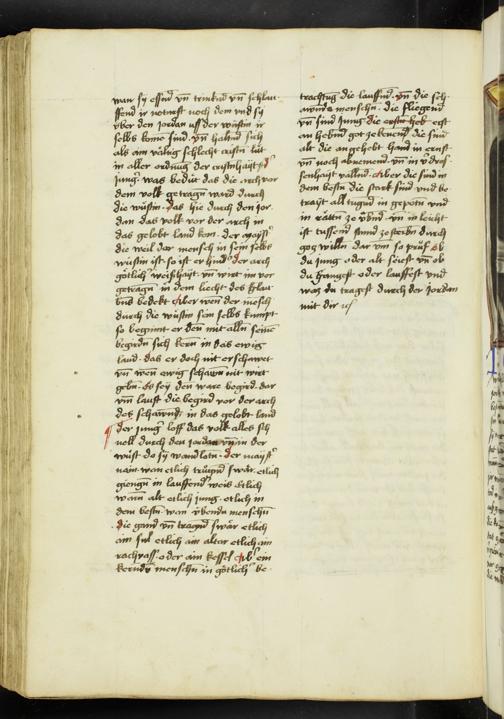 wan sy essend vn trinkend vn schlau
ffend ir notturft noch dem vnd sy
vber den jordan vss der wuͤstin ir
selbs kome sind vn haltend sich
als ain valtig schlecht cristn luͤt
in aller ordnung der cristenhayt d'
jung' was beduͤt das die arch vor
dem volk getragen ward durch
die wuͤstin das hie durch den jor
dan das volk vor der arch in
das gelobt land kam der mayst'
die weil der mensch in sein selbs
wuͤstin ist so ist er hind' der arch
goͤtlich' weißhayt vn wirt im vor
getragen in dem liecht des glau
bens bedekt Aber wen der mesch
durch die wuͤstin sein selbs kumpt
so begint er den mit alln seine
begirdn sich kern in das ewig
land das er doch nit erschawet
vn wen ewig schawn nit wirt
gebn es sey den ware begird dar
vm lauft die begird vor der arch
des schawends in das gelobt land
der jung' loff das volk alles sch
nell durch den jordan vn in der
wuͤst do sy wandlotn der mayst'
nain wan etlich truͤgend swaͤr etlich
giengen in lauffend' weis Etlich
warn alt etlich jung etlich in
dem bestn wan vbends menschn
die gand vn tragend swaͤr etlich
ain sul etlich ain altar etlich ain
rachvass oder ain kessel Ab' ein
kerends menschn in goͤtlich' be
trachtug die lauffend vn die sch
awends menschn die fliegend
vn sind jung die erstn heb erst
an hebend got zekenend die sind
alt die angehebt hand in ernst
vn noch abnemend vn in v'dros
senhayt vallend Aber die sind in
dem bestn die stark sind vnd be
trayt all tugend in gepotn vnd
in raͤttn ze vbend vn in leicht
ist tussend stund zesterbn durch
gotz willn dar vm so pruͤf ob
du jung oder alt seiest vn ob
du gangest oder lauffest vnd
waz du tragest durch der jordan
mit dir